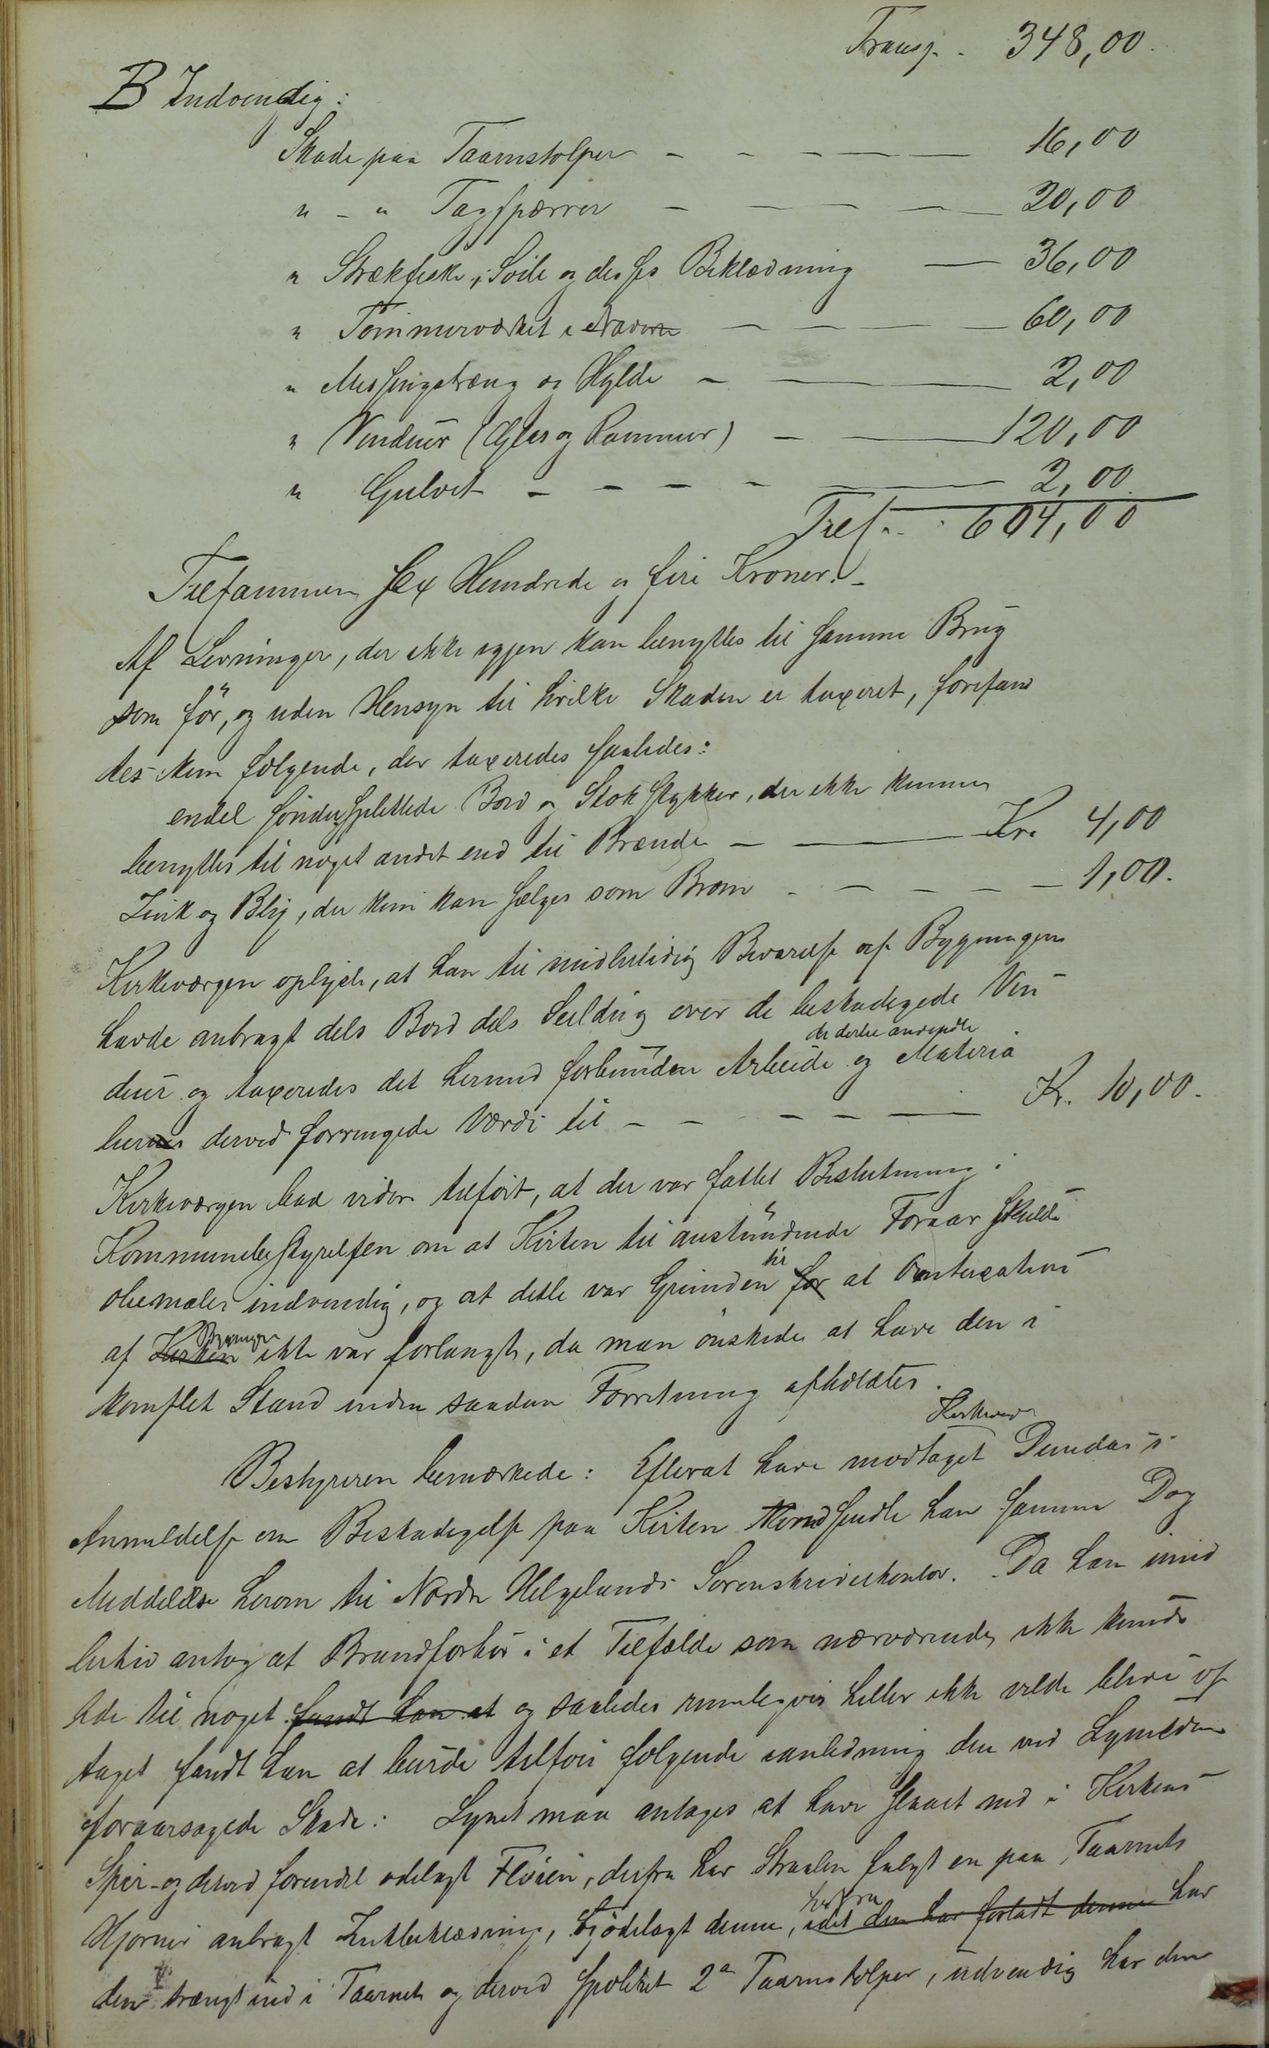 Transp. 348,00.
B Indvendig:
Skade paa Taarnstolper — — — — 16,00
" - " Tagspærrer — — — — 20,00
" Strækfiske, Söile og desses Beklædning — 36,00
" Tömmerværket i — — — 60,00
" Messingstræng og Hylde — — 2,00
" Vinduer (Glas og Rammer) — — 120,00
" Gulvet — — — — — 2,00
Tils. . 604,00
Tilsammen Sex Hundrede og fire Kroner. -
Af Levninger, der ikke igjen kan benyttes til samme Brug
som för, og uden Hensyn til hvilke Skaden er taxeret, forefand
tes kun følgende, der taxeredes saaledes:
endel sönder splittede Bord og Stokstykker, der ikke kunne
benyttes til noget andet end til Brænde — — Kr. 4,00
Zink og Blij, der kun kan sælges som — — — — 1,00.
Kirkeværgen oplyste, at han til midlertidig Bevarelse af Bygningen
havde anbragt dels Bord dels Seildug over de beskadigede Vin
duer og taxeredes det hermed forbundne Arbeide og de dertil anvendte Materia
lier dervid forringede Værdi til — — — — — Kr. 10,00.
Kirkeværgen bad videre tilfört, at der var fattet Beslutning i
Kommunebestyrelsen om at Kirken til anstundende Foraar skulde
oliemales indvendig, og at dette var Grunden til for at Omtaxation
af Kirken Bygningen ikke var forlangt, da man önskede at have den i
komplet Stand inden saadan Forretning afholdtes.
Bestyreren bemærkede: Efterat have modtaget Kirkeværge Dundas's
Anmeldelse om Beskadigelse paa Kirken sendte han samme Dag
Meddelelse herom til Nordre Helgelands Sorenskriverkontor. Da han imid
lertid antog at Brandforhör i et Tilfælde som nærværende, ikke kunde
lede til noget fandt han at og saaledes rimeligvis heller ikke vilde blive op
taget fandt han at burde tilföie følgende anledning den ved Lynilden
foraarsagede Skade: Lynet maa antages at have slaaet ned i Kirkens
Spir og derved forendel ödelagt Flöien, derfra har Straalen fulgt en paa Taarnets
Hjörner anbragt Zinkbeklædning, ödelagt denne, herfra idet den har forladt denne har
den trængt ind i Taarnet og derved splittet 2de Taarnstolper, udvendig har den